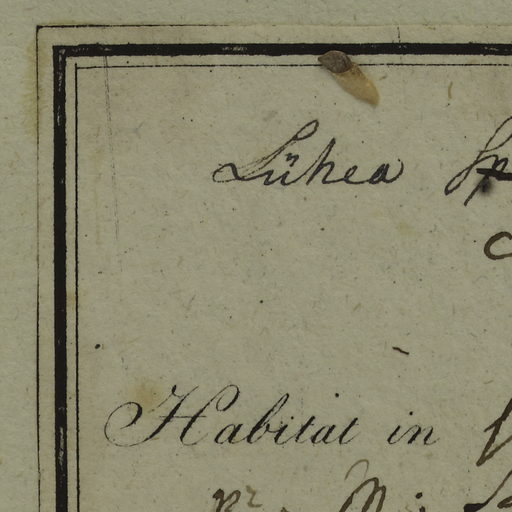 Lühea Sp
Habitat in